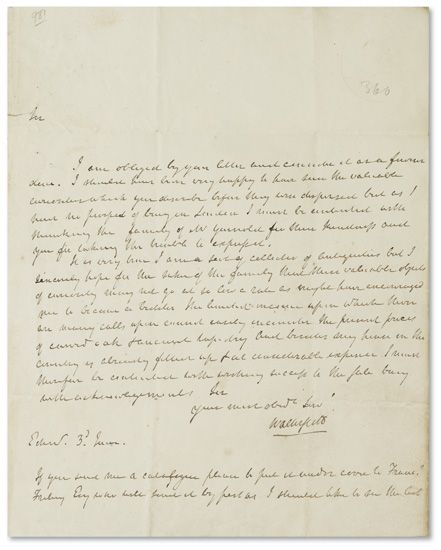 981
360
Sir
I am obliged by your letter and consider it as a favour
done. I should have been very happy to have seen the valuable
curiosities which you describe before they were dispersed but as I
have no prospect of being in London I must be contented with
thanking the family of Mr for their kindness and
you for taking the trouble to express it.
It is very true I am a sort of collector of antiquities but I
sincerely hope for the sake of the family that these valuable objects
of curiosity may not go at so low a rate as might have encouraged
me to become a bidder. The limited income upon which there
are many calls upon cannot easily encounter the present prices
of carved oak & ancient tapestry and besides my house in the
country is already fitted up & at considerable expense I must
therefore be contented with wishing success to the sale being
with acknowledgements Sir
Your most obedt Servt
Walter Scott
Edinr. 3d June.
If you send me a catalogue please to put it under cover to Francis
Freling Esq who will send it by post as I should like to see the list